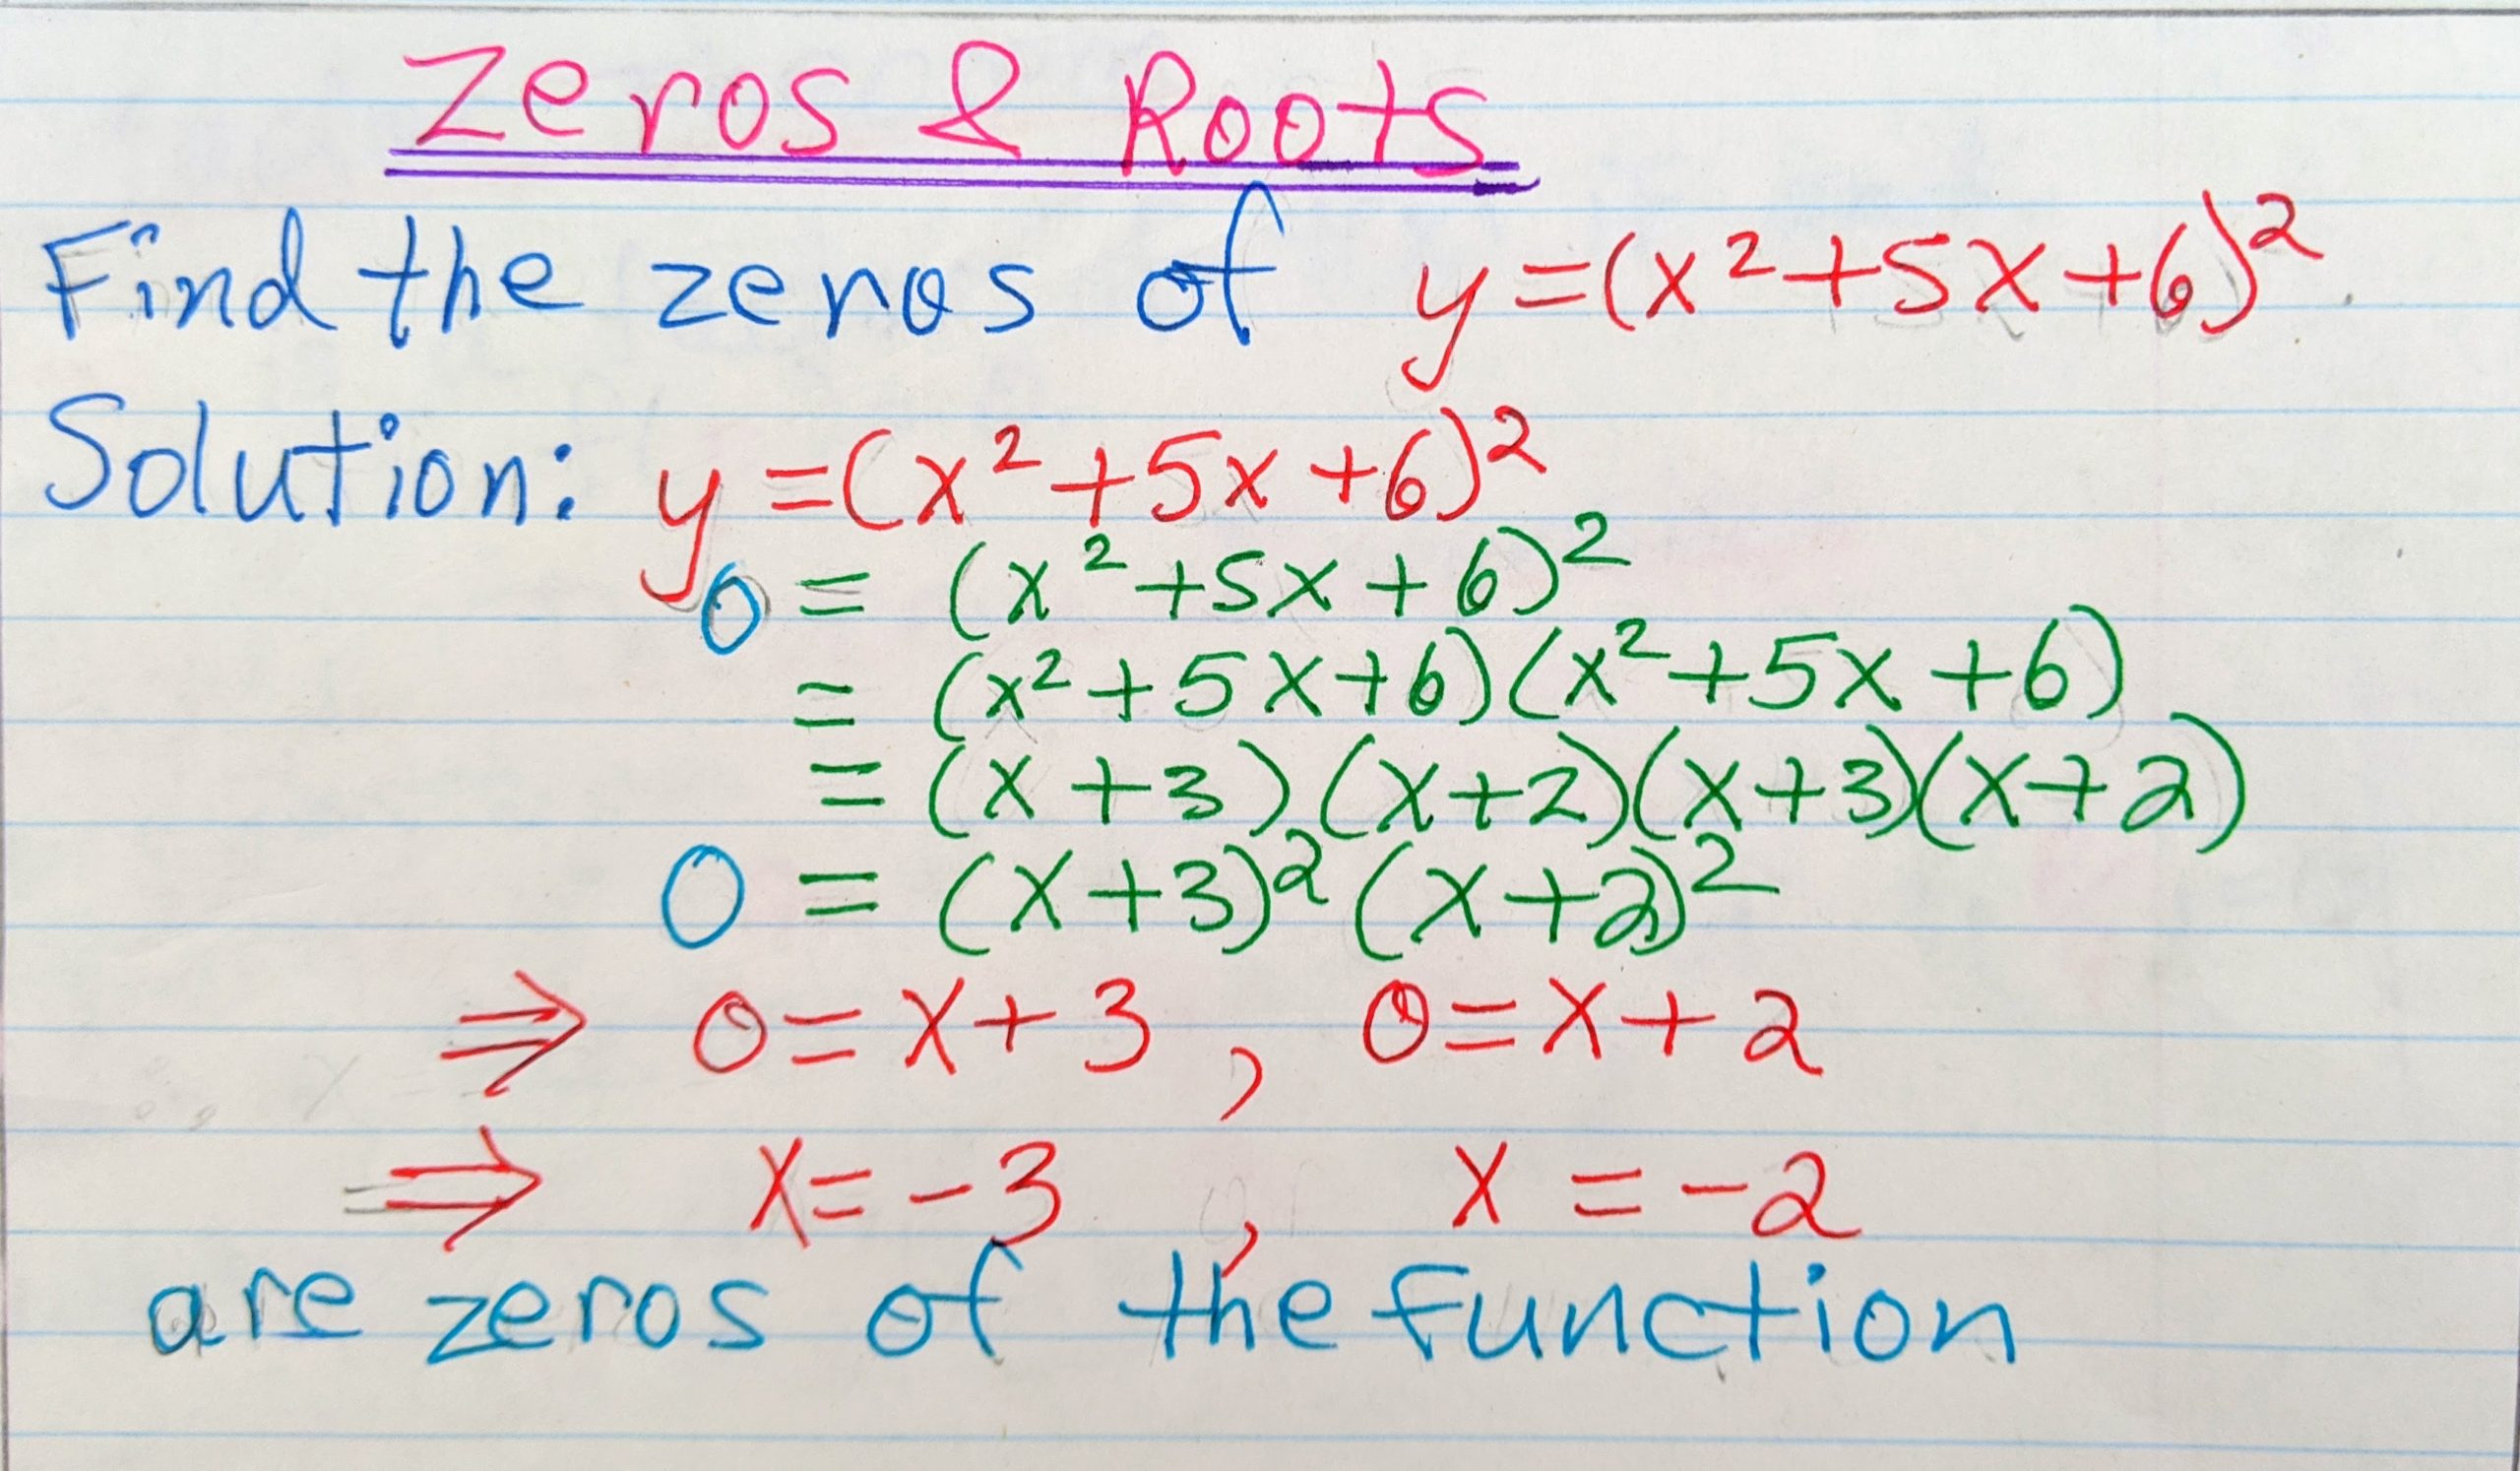 Zeros & Roots
Find the zeros of y=(x²+5x+6)²
Solution: y=(x²+5x+6)²
0 = (x²+5x+6)²
= (x²+5x+6)(x²+5x+6)
= (x+3)(x+2)(x+3)(x+2)
0 = (x+3)²(x+2)²
⇒ 0=x+3, 0=x+2
⇒ x=-3, x=-2
are zeros of the function